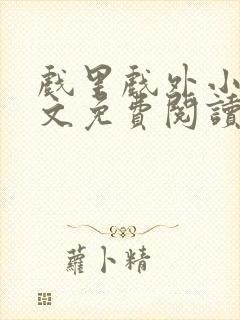 戲里戲外小
文免費閱讀
蘿卜精